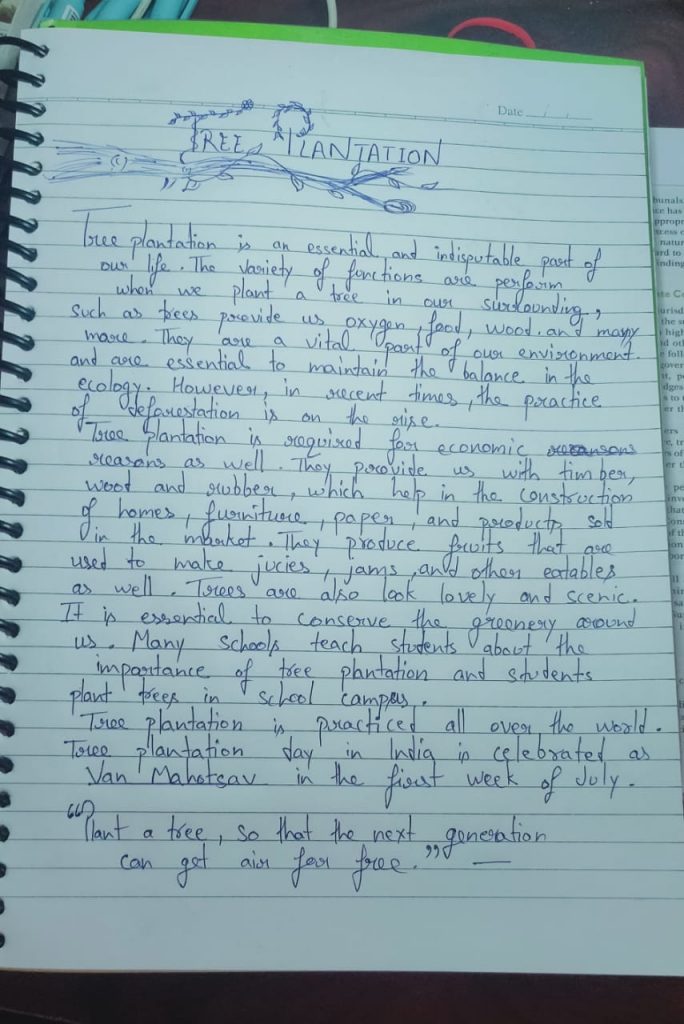 Date
TREE PLANTATION
Tree plantation is an essential and indisputable part of
our life. The variety of functions are perform
when we plant a tree in our surrounding,
such as trees provide us oxygen, food, wood. and many
more. They are a vital part of our environment.
and are essential to maintain the balance in the
ecology. However, in recent times, the practice
of deforestation is on the rise.
Tree plantation is required for economic
reasons as well. They provide us with timber,
wood and rubber, which help in the construction
of homes, furniture, paper, and products sold
in the market. They produce fruits that are
used to make jucies, jams, and other eatables
as well. Trees are also look lovely and scenic.
It is essential to conserve the greenery around
us. Many schools teach students about the
importance of tree plantation and students
plant trees in school campus.
Tree plantation is practiced all over the world.
Tree plantation day in India is celebrated as
Van Mahotsav in the first week of July.
"Plant a tree, so that the next generation
can get air for free." —